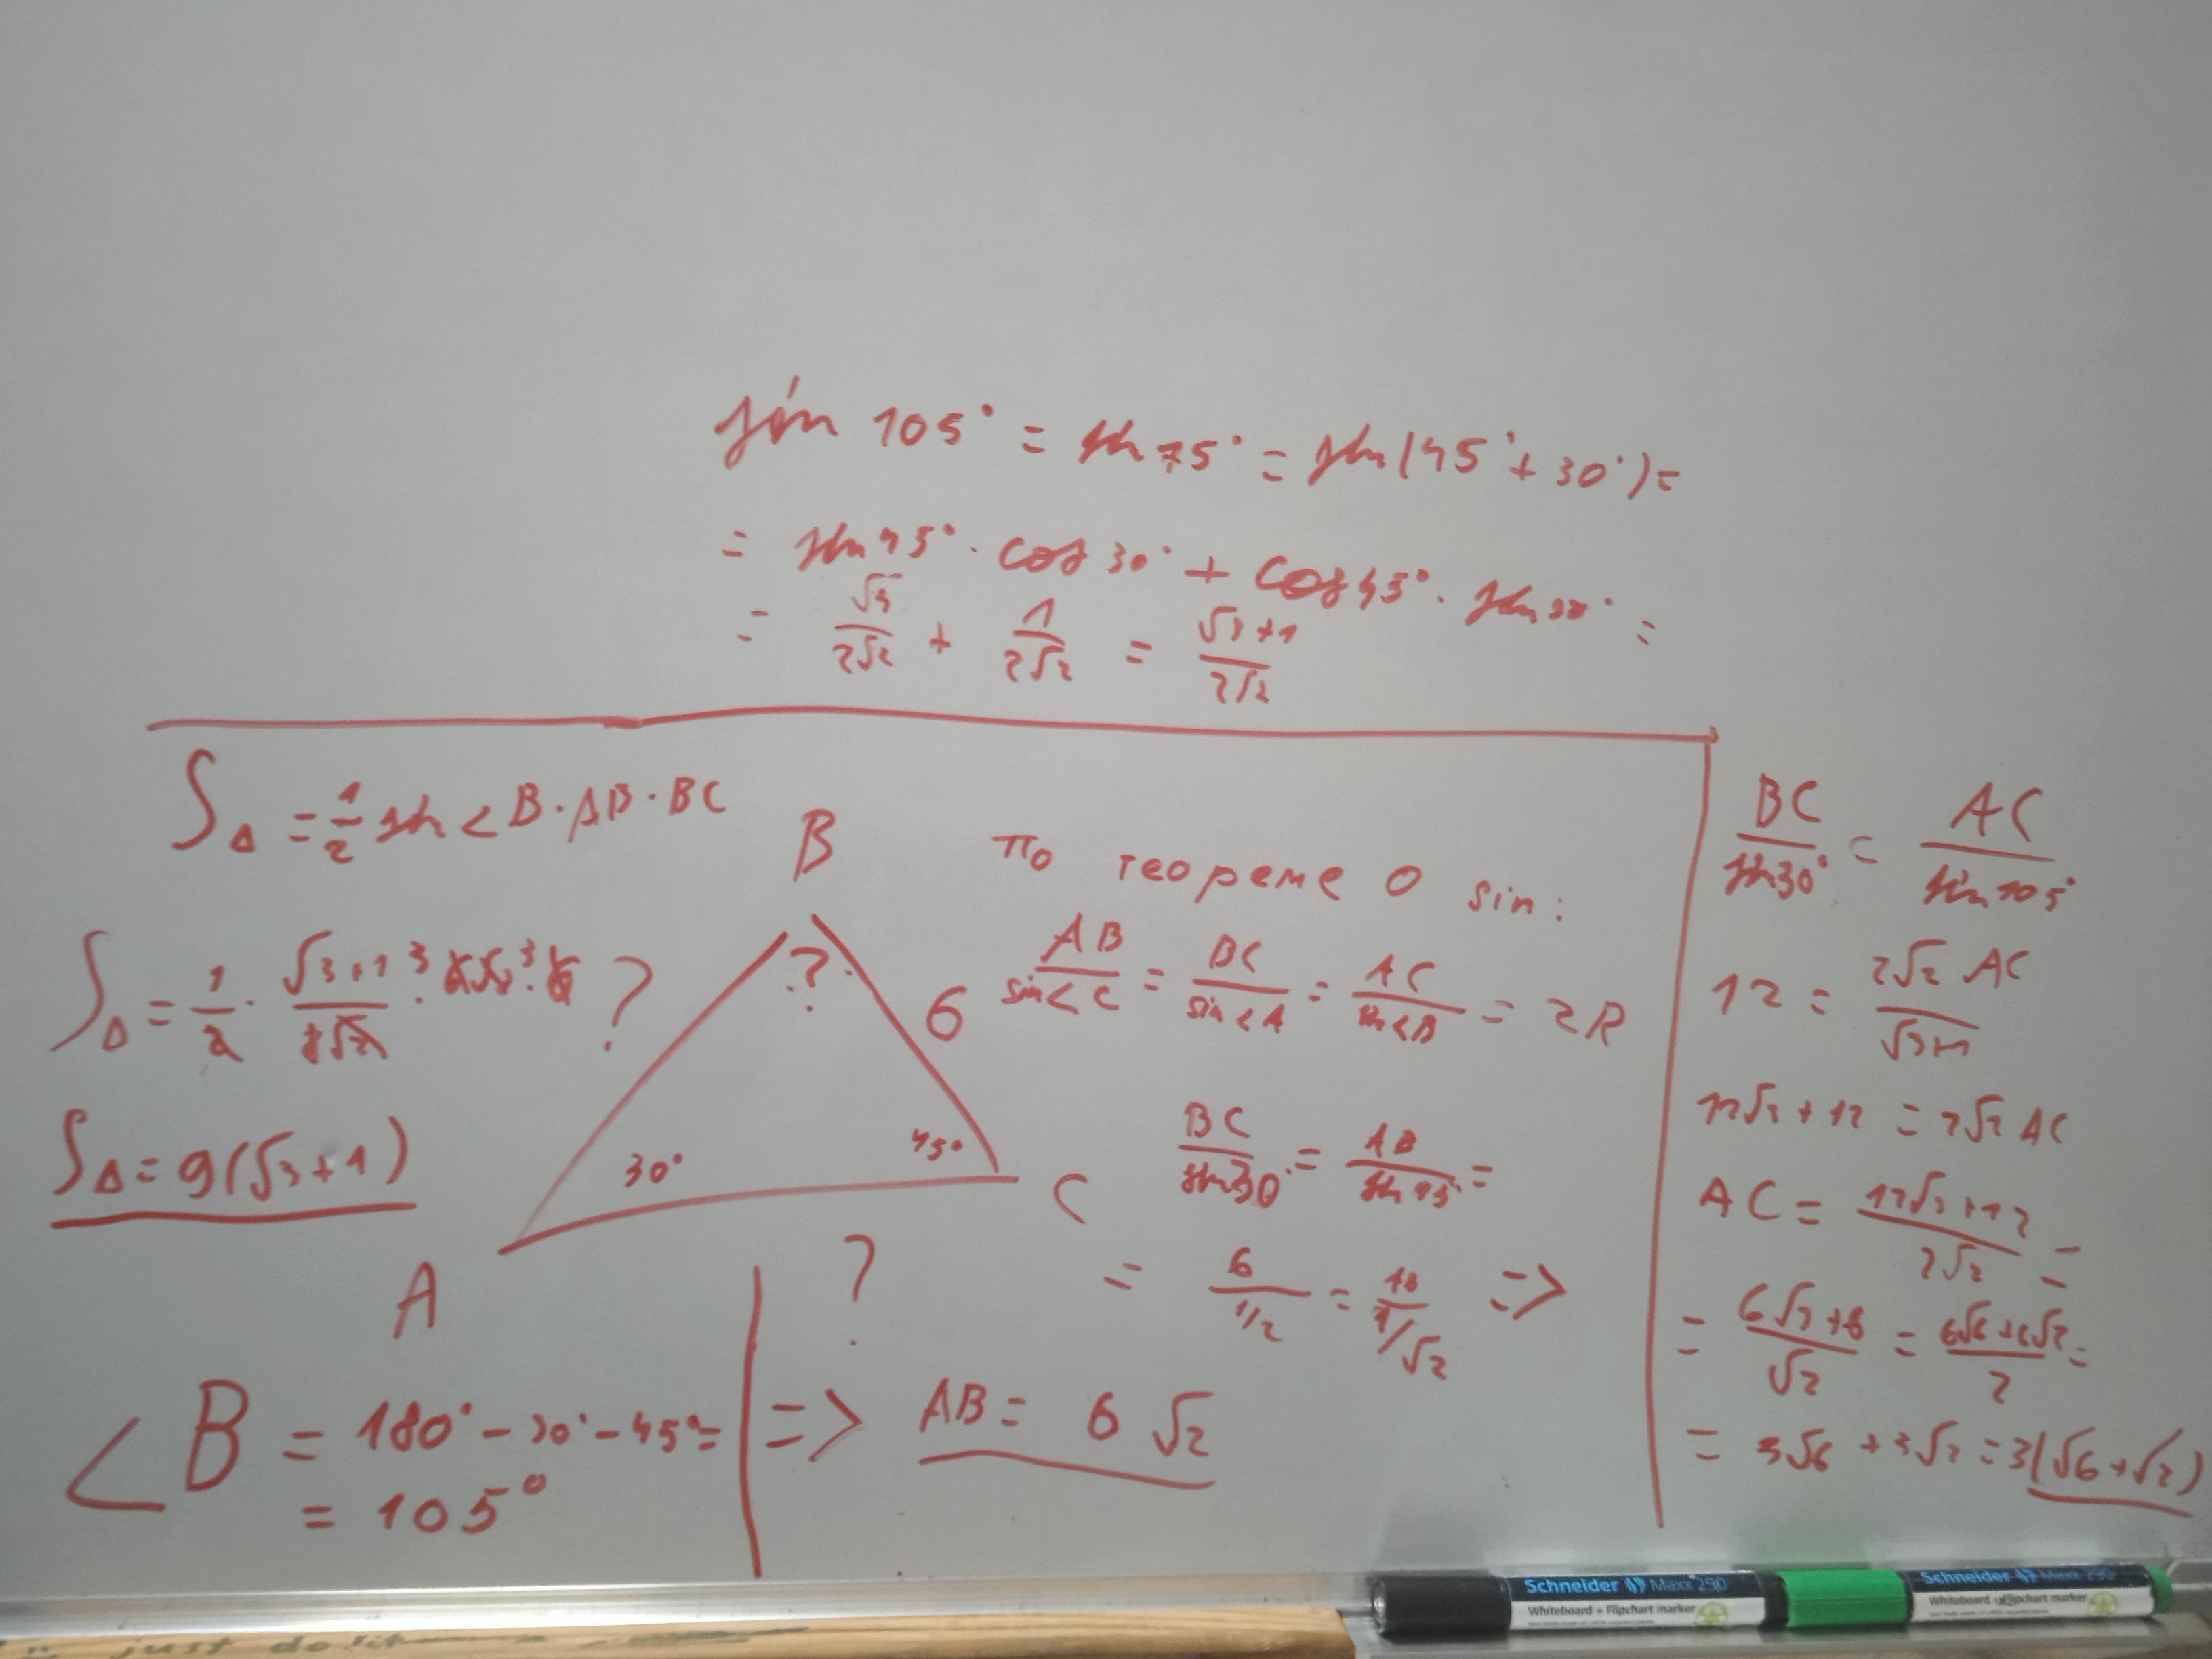 sin 105° = sin 75° = sin(45° + 30°) =
= sin 45° · cos 30° + cos 45° · sin 30° =
= √3/2√2 + 1/2√2 = √3+1/2√2
S△ = 1/2 sin < B · AB · BC
S△ = 1/2 · √3+1/2√2 · 6√2 · 6
S△ = 9(√3+1)
B
?
?
6
30°
45°
A
C
?
< B = 180° - 30° - 45° =
= 105°
по теореме о sin:
AB/sin<C = BC/sin<A = AC/sin<B = 2R
BC/sin30° = AB/sin45° =
= 6/1/2 = AB/1/√2 =>
=> AB = 6√2
BC/sin30° = AC/sin105°
12 = 2√2 AC/√3+1
12√3 + 12 = 2√2 AC
AC = 12√3+12/2√2 =
= 6√3+6/√2 = 6√6+6√2/2 =
= 3√6 + 3√2 = 3(√6+√2)
Schneider Maxx 290
Whiteboard + Flipchart marker
Schneider Maxx 290
Whiteboard + Flipchart marker
just do it